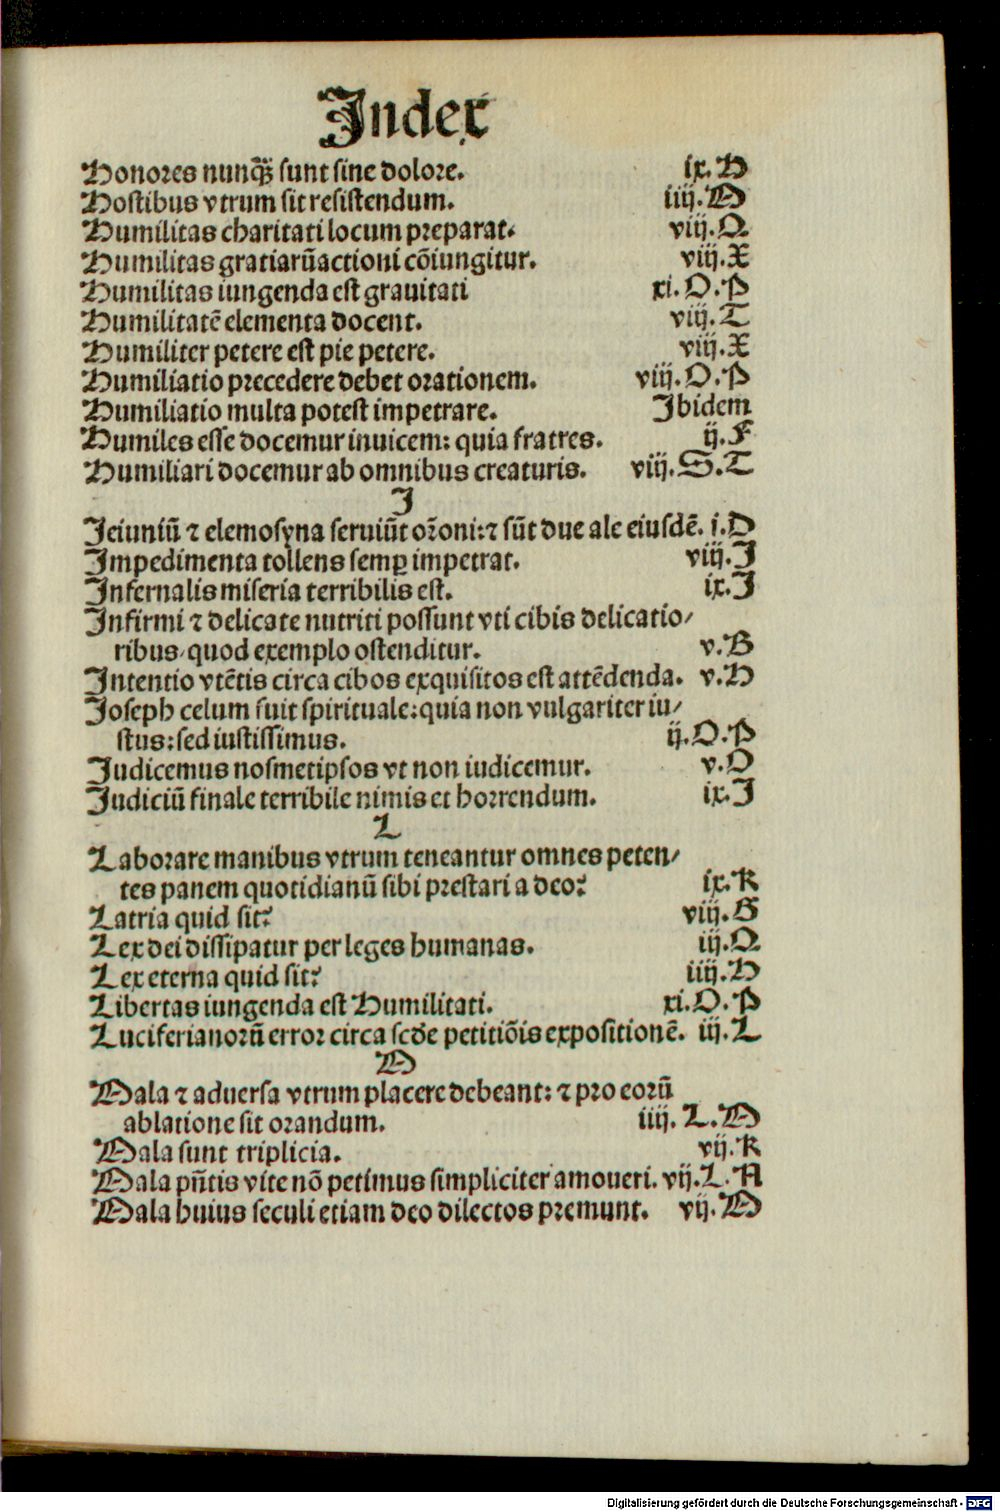 Index
Honores nunꝗ̃ sunt sine dolore. ix.H
Hostibus vtrum sit resistendum. iiij.M
Humilitas charitati locum preparat. viij.Q
Humilitas gratiarũactioni cõiungitur. viij.X
Humilitas iungenda est grauitati xi.O.P
Humilitatẽ elementa docent. viij.T
Humiliter petere est pie petere. viij.X
Humiliatio precedere debet orationem. viij.O.P
Humiliatio multa potest impetrare. Ibidem
Humiles esse docemur inuicem: quia fratres. ij.F
Humiliari docemur ab omnibus creaturis. viij.S.T
I
Ieiuniũ ⁊ elemosyna seruiũt or̃oni:⁊ sũt due ale eiusdẽ. i.D
Impedimenta tollens semꝑ impetrat. viij.I
Infernalis miseria terribilis est. ix.I
Infirmi ⁊ delicate nutriti possunt vti cibis delicatio/
ribus/quod exemplo ostenditur. v.B
Intentio vtẽtis circa cibos exquisitos est attẽdenda. v.H
Ioseph celum fuit spirituale:quia non vulgariter iu/
stus:sed iustissimus. ij.O.P
Iudicemus nosmetipsos vt non iudicemur. v.O
Iudiciũ finale terribile nimis et horrendum. ix.I
L
Laborare manibus vtrum teneantur omnes peten/
tes panem quotidianũ sibi prestari a deo? ix.K
Latria quid sit? viij.G
Lex dei dissipatur per leges humanas. iij.Q
Lex eterna quid sit? iiij.H
Libertas iungenda est Humilitati. xi.O.P
Luciferianorũ error circa scd̃e petitiõis expositionẽ. iij.L
M
Mala ⁊ aduersa vtrum placere debeant: ⁊ pro eorũ
ablatione sit orandum. iiij.L.M
Mala sunt triplicia. vij.K
Mala pñtis vite nõ petimus simpliciter amoueri. vij.L.N
Mala huius seculi etiam deo dilectos premunt. vij.M
Digitalisierung gefördert durch die Deutsche Forschungsgemeinschaft - DFG